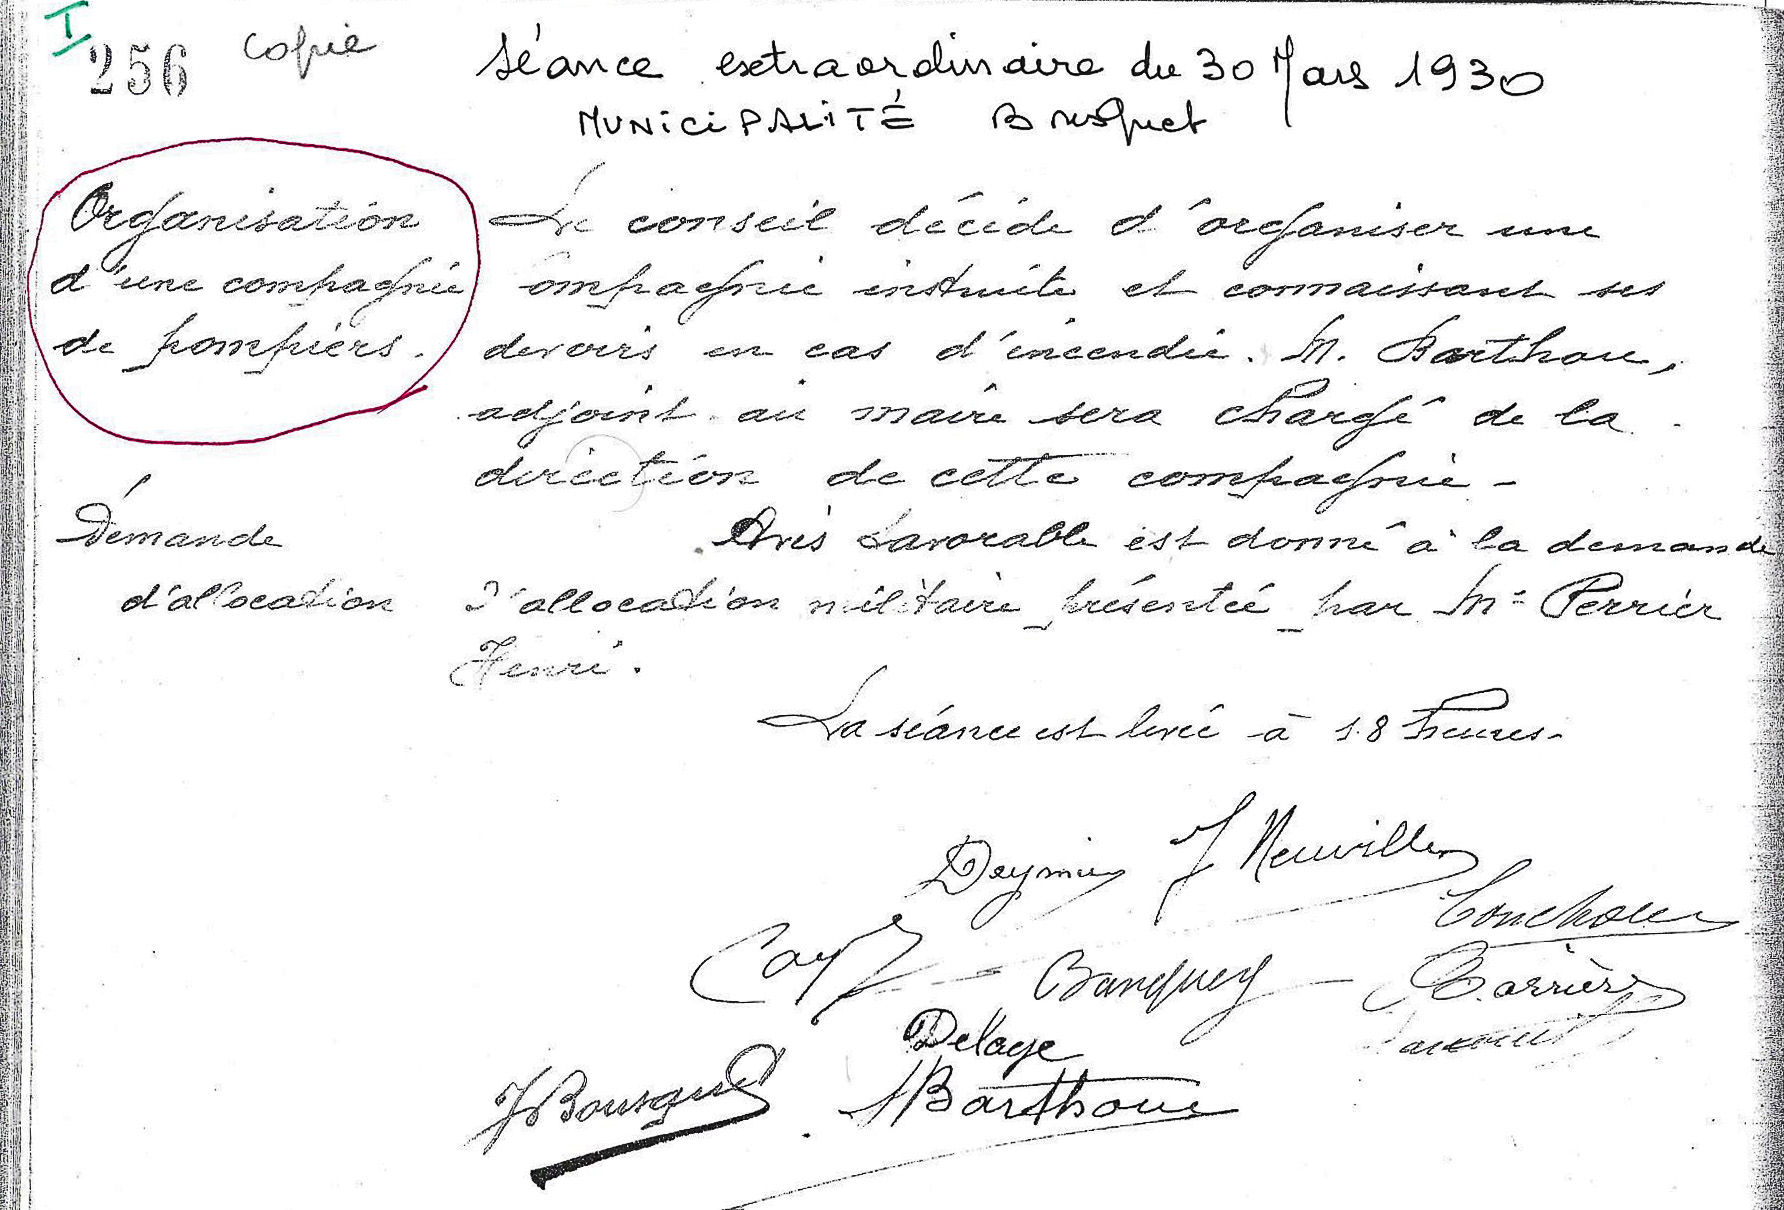 I
256 copie
Séance extraordinaire du 30 Mars 1930
MUNICIPALITÉ Bousquet
Organisation
d'une compagnie
de pompiers.
Le conseil décide d'organiser une
ompagnie instruite et connaissant ses
devoirs en cas d'incendie. M. Barthou,
adjoint au maire sera chargé de la
direction de cette compagnie -
Demande
d'allocation
Avis favorable est donné à la demande
d'allocation militaire présentée par Mr Perrier
Henri.
La séance est levée à 18 heures.
Deymier J Neuville
Conchou
Banquey
Barrière
Delage
JBousquet
ABarthoue